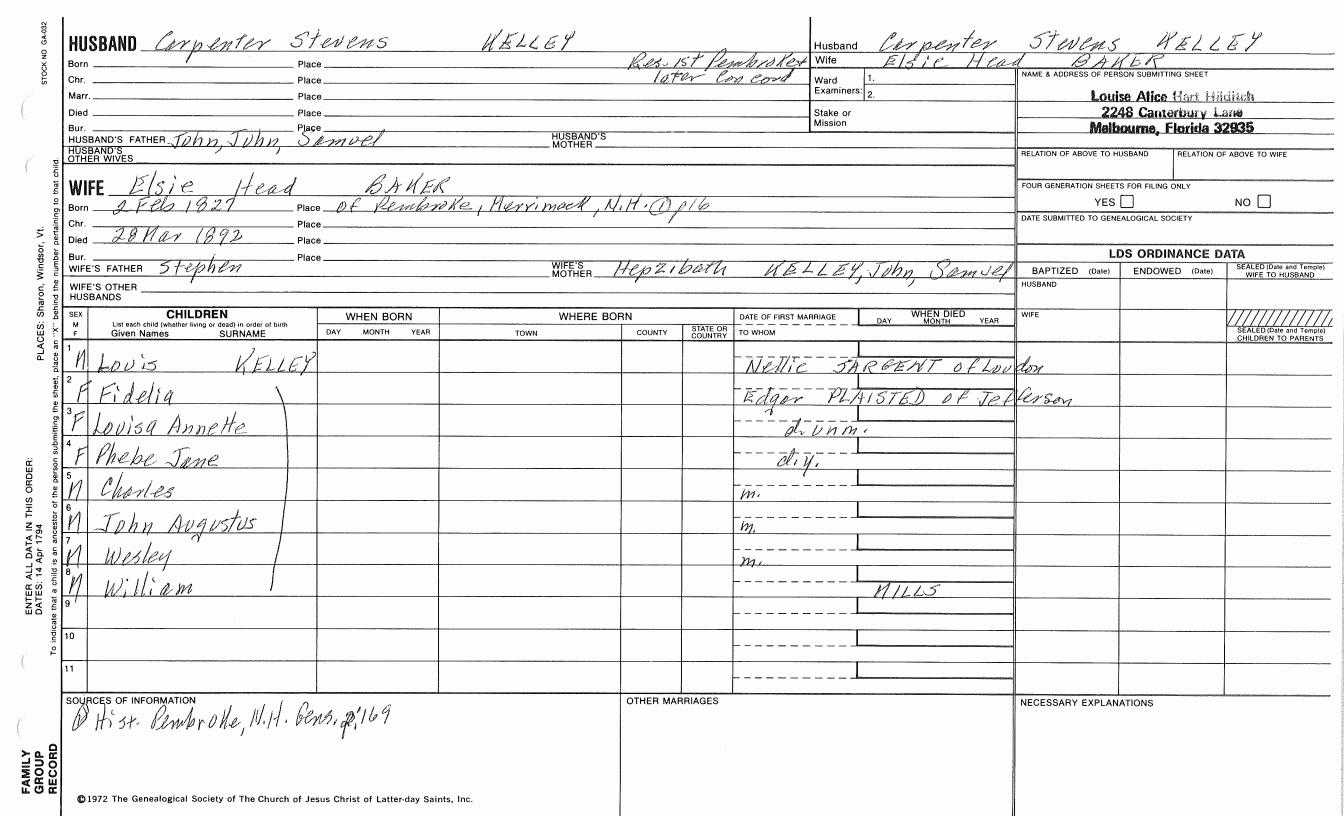 STOCK NO. GA-032
HUSBAND Carpenter Stevens KELLEY
Born Place Res. 1st Pembroke
Chr. Place later Concord
Marr. Place
Died Place
Bur. Place
HUSBAND'S FATHER John, John, Samuel HUSBAND'S MOTHER
HUSBAND'S OTHER WIVES
Husband Carpenter Stevens KELLEY
Wife Elsie Head BAKER
Ward Examiners: 1.
2.
Stake or Mission
NAME & ADDRESS OF PERSON SUBMITTING SHEET
Louise Alice Hart Hilditch
2248 Canterbury Lane
Melbourne, Florida 32935
RELATION OF ABOVE TO HUSBAND RELATION OF ABOVE TO WIFE
FOUR GENERATION SHEETS FOR FILING ONLY
YES NO
DATE SUBMITTED TO GENEALOGICAL SOCIETY
WIFE Elsie Head BAKER
Born 2 Feb 1827 Place of Pembroke, Merrimack, N.H. ① p16
Chr. Place
Died 28 Mar 1892 Place
Bur. Place
WIFE'S FATHER Stephen WIFE'S MOTHER Hepzibath KELLEY, John, Samuel
WIFE'S OTHER HUSBANDS
LDS ORDINANCE DATA
BAPTIZED (Date) ENDOWED (Date) SEALED (Date and Temple) WIFE TO HUSBAND
HUSBAND
WIFE
SEALED (Date and Temple) CHILDREN TO PARENTS
SEX M F CHILDREN WHEN BORN WHERE BORN DATE OF FIRST MARRIAGE WHEN DIED
List each child (whether living or dead) in order of birth
Given Names SURNAME DAY MONTH YEAR TOWN COUNTY STATE OR COUNTRY TO WHOM DAY MONTH YEAR
1 M Louis KELLEY Nellie SARGENT of Loudon
2 F Fidelia Edgar PLAISTED of Jefferson
3 F Louisa Annette d. unm.
4 F Phebe Jane d.y.
5 M Charles m.
6 M John Augustus m.
7 M Wesley m.
8 M William MILLS
9
10
11
SOURCES OF INFORMATION
① Hist. Pembroke, N.H. Gens. p.169
OTHER MARRIAGES
NECESSARY EXPLANATIONS
©1972 The Genealogical Society of The Church of Jesus Christ of Latter-day Saints, Inc.
ENTER ALL DATA IN THIS ORDER:
DATES: 14 Apr 1794 PLACES: Sharon, Windsor, Vt.
To indicate that a child is an ancestor of the person submitting the sheet, place an "X" behind the number pertaining to that child
FAMILY
GROUP
RECORD